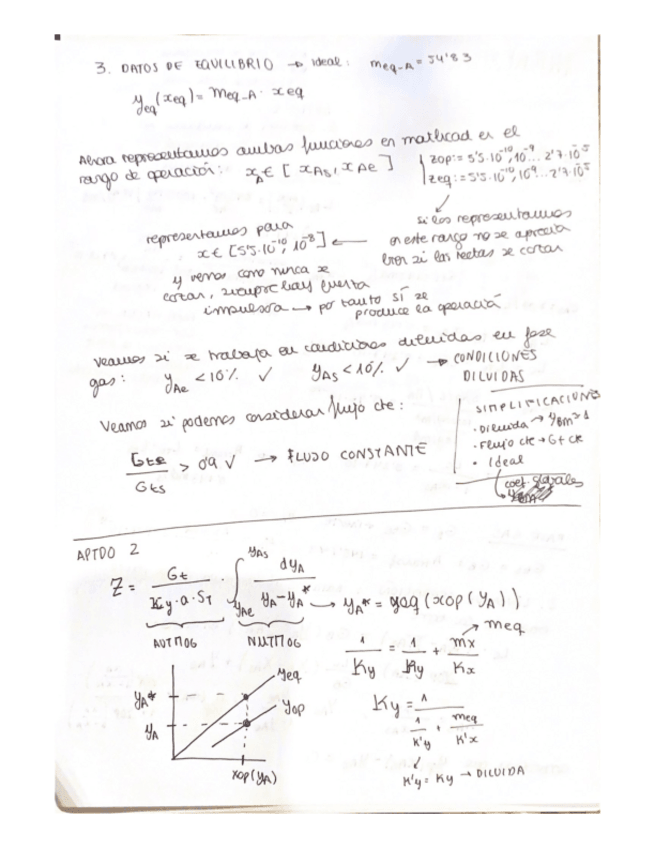 3. DATOS DE EQUILIBRIO → ideal: meq-A = 54'83
yeq(xeq) = meq-A · xeq
Ahora representamos ambas funciones en mathcad en el
rango de operación: xA ∈ [xAs, xAe]
xop := 5'5·10^-10, 10^-9 ... 2'7·10^-5
xeq := 5'5·10^-10, 10^-9 ... 2'7·10^-5
si los representamos
en este rango no se aprecia
bien si las rectas se cortan
representamos para
x ∈ [5'5·10^-10, 10^-8] ←
y vemos como nunca se
cortan, siempre hay fuerza
impulsora → por tanto sí se
produce la operación
Veamos si se trabaja en condiciones diluidas en fase
gas: yAe < 10% ✓ yAs < 10% ✓ → CONDICIONES
DILUIDAS
Veamos si podemos considerar flujo cte:
Gte/Gts > 0'9 ✓ → FLUJO CONSTANTE
SIMPLIFICACIONES
· Diluida → yBm≃1
· Flujo cte → Gt cte
· Ideal
coef. globales
APTDO 2
Z = Gt/(Ky·a·ST) · ∫ yAe yAs dyA/(yA-yA*) → yA* = yeq(xop(yA))
AUTΠOG NUTΠOG
1/Ky = 1/ky + mx/kx → meq
Ky = 1/(1/k'y + meq/k'x)
k'y = ky → DILUIDA
yeq
yop
yA*
yA
xop(yA)